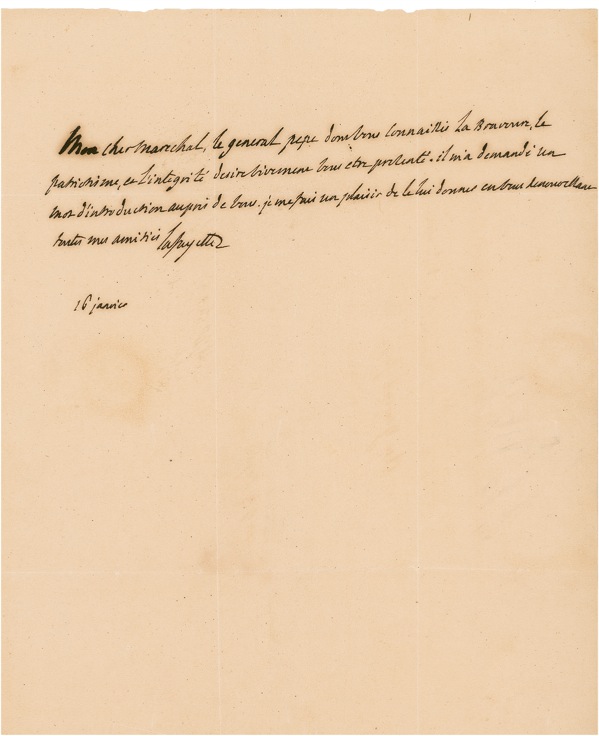 Mon cher Marechal, le general pepe dont vous connaissés la Bravoure, le
patriotisme, et l'integrité desire vivement vous être presenté. il m'a demandé un
mot d'introduction auprès de vous. je me fais un plaisir de le lui donner en vous renouvellant
toutes mes amitiés Lafayette
16 janvier